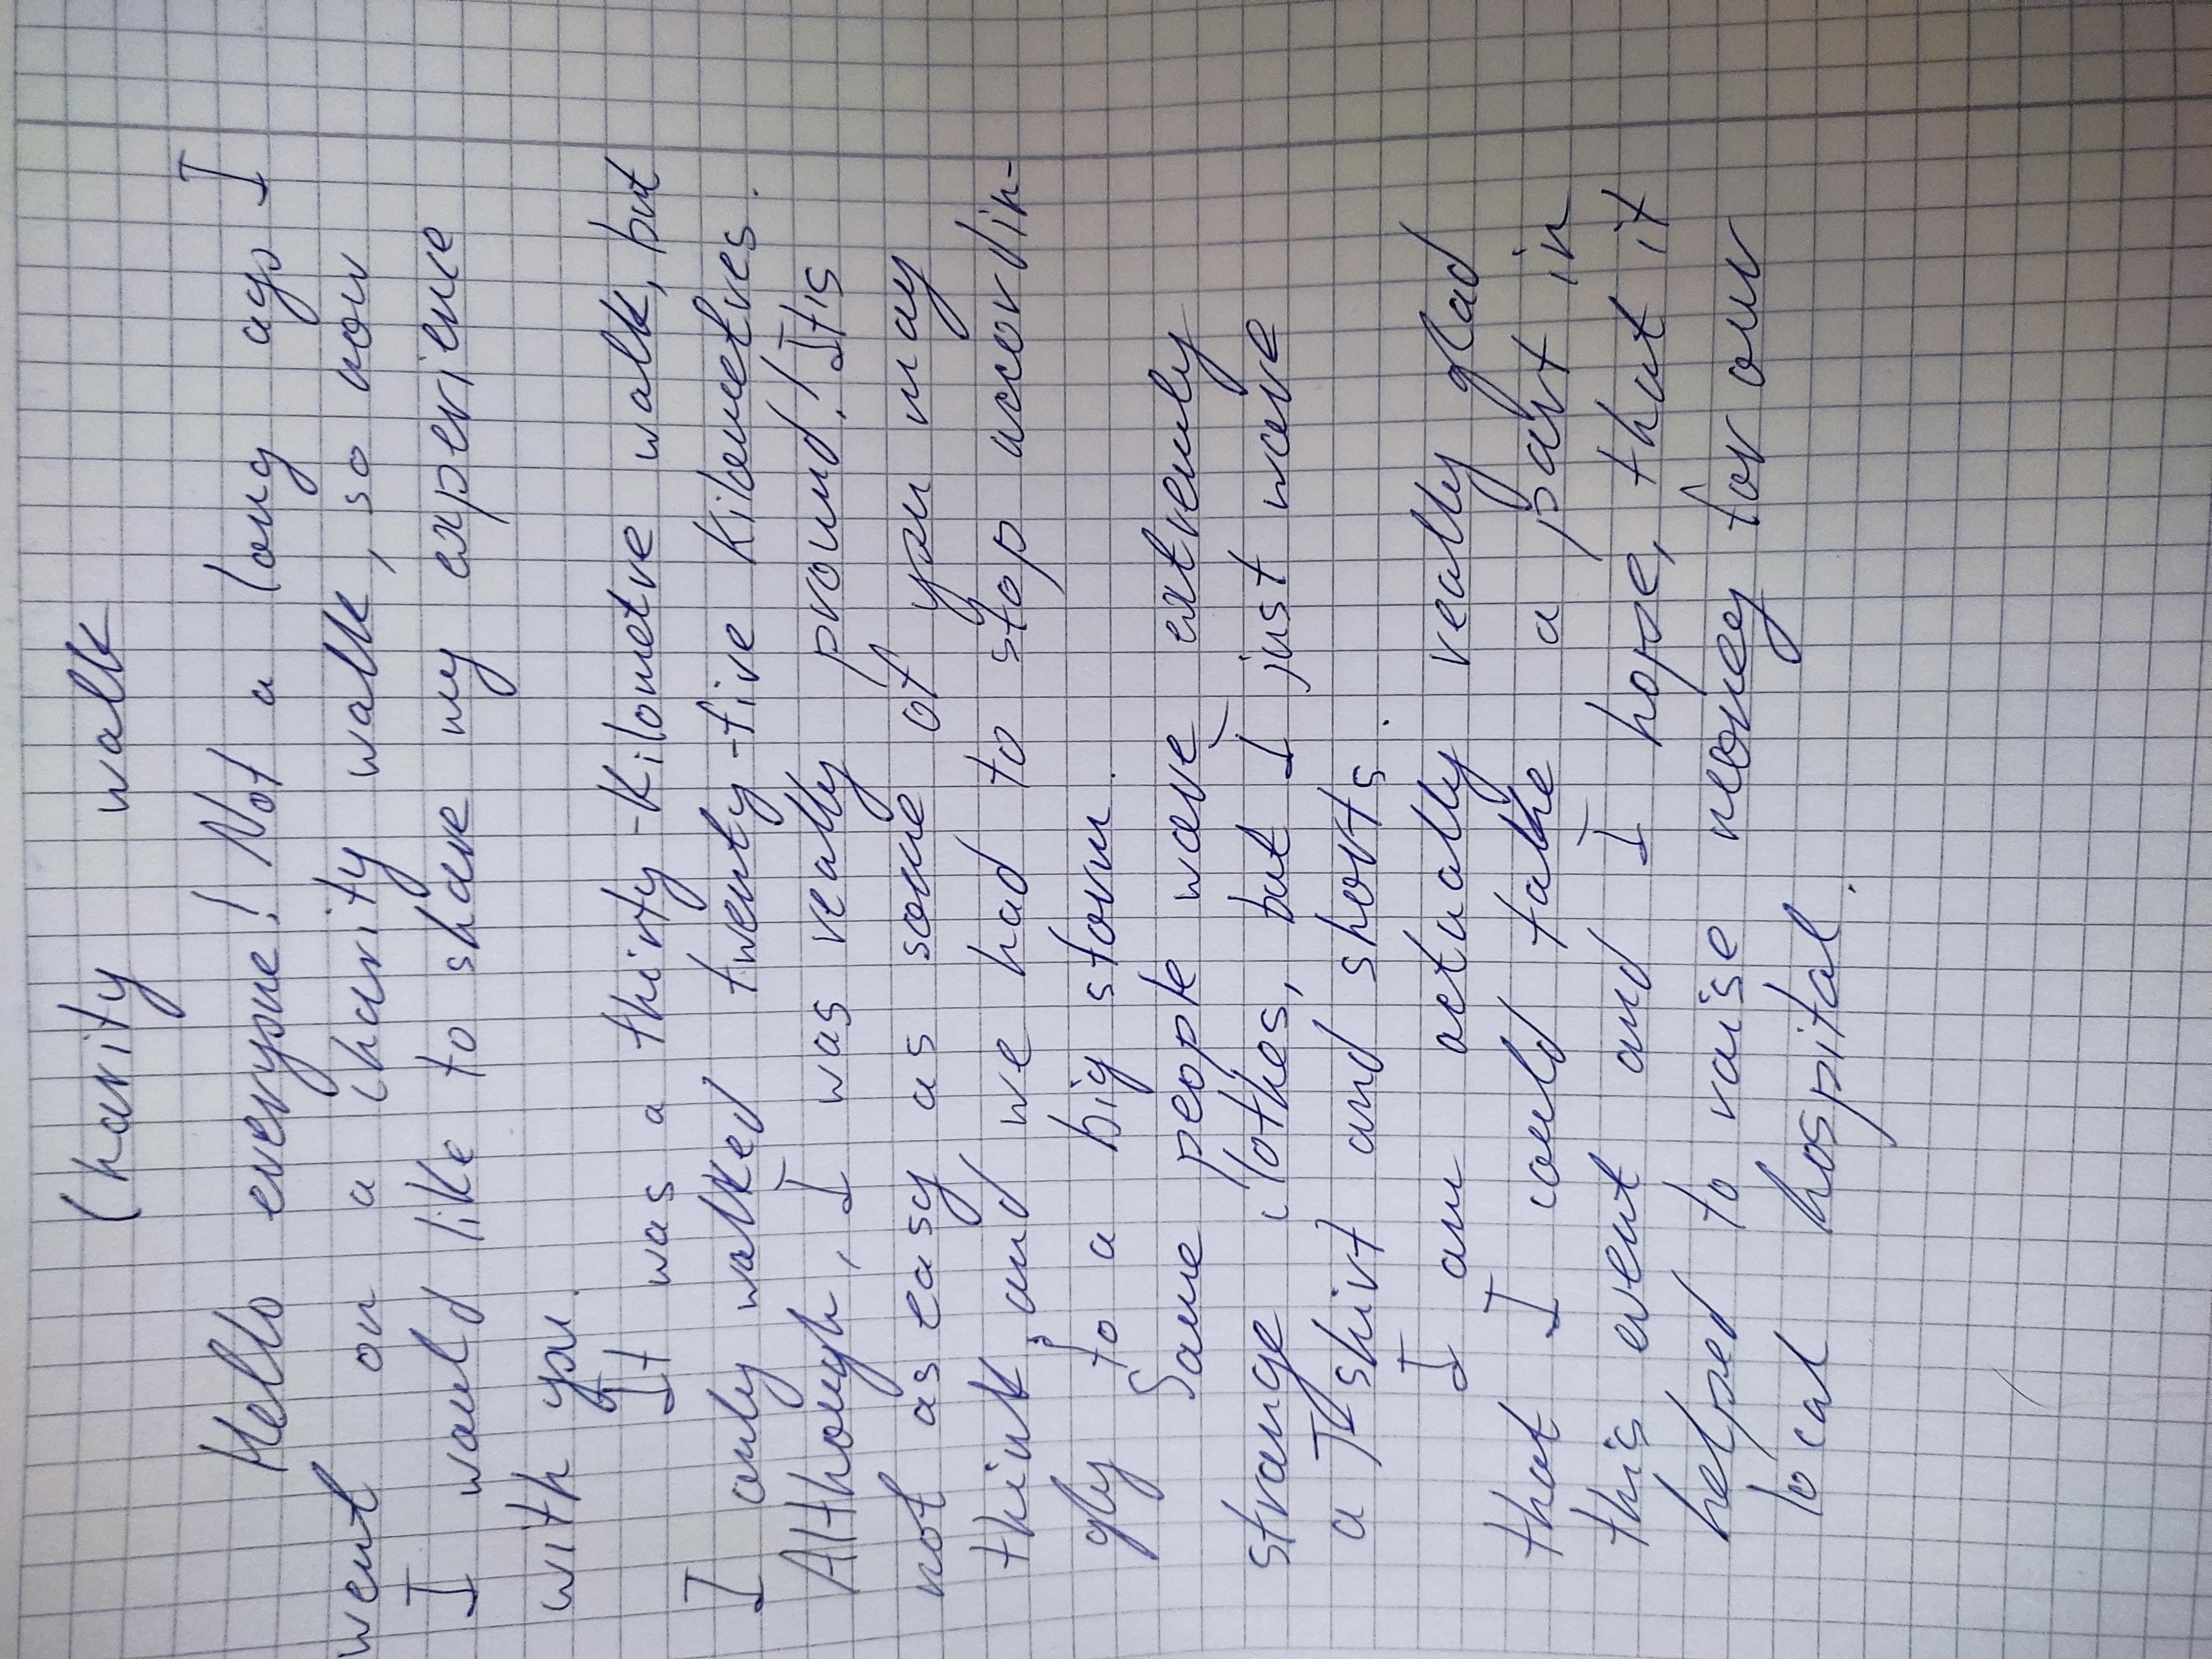 Charity walk
Hello everyone! Not a long ago I
went on a charity walk, so now
I would like to share my experience
with you.
It was a thirty-kilometre walk, but
I only walked twenty-five kilometres.
Although, I was really pround! It is
not as easy as some of you may
think, and we had to stop accordin-
gly to a big storm.
Some people wore extremly
strange clothes, but I just wore
a T-shirt and shorts.
I am actually really glad
that I could take a part in
this event and I hope, that it
helped to raise money for our
local hospital.